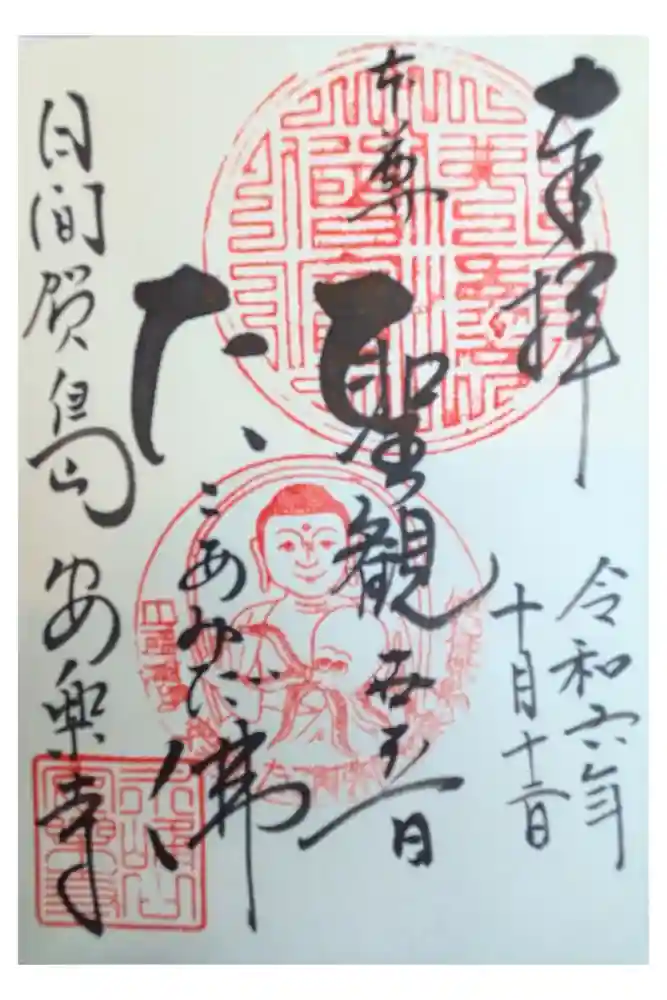 奉拝
令和六年
十月十三日
本尊
聖観世音
たこあみだ佛
日間賀島 安楽寺